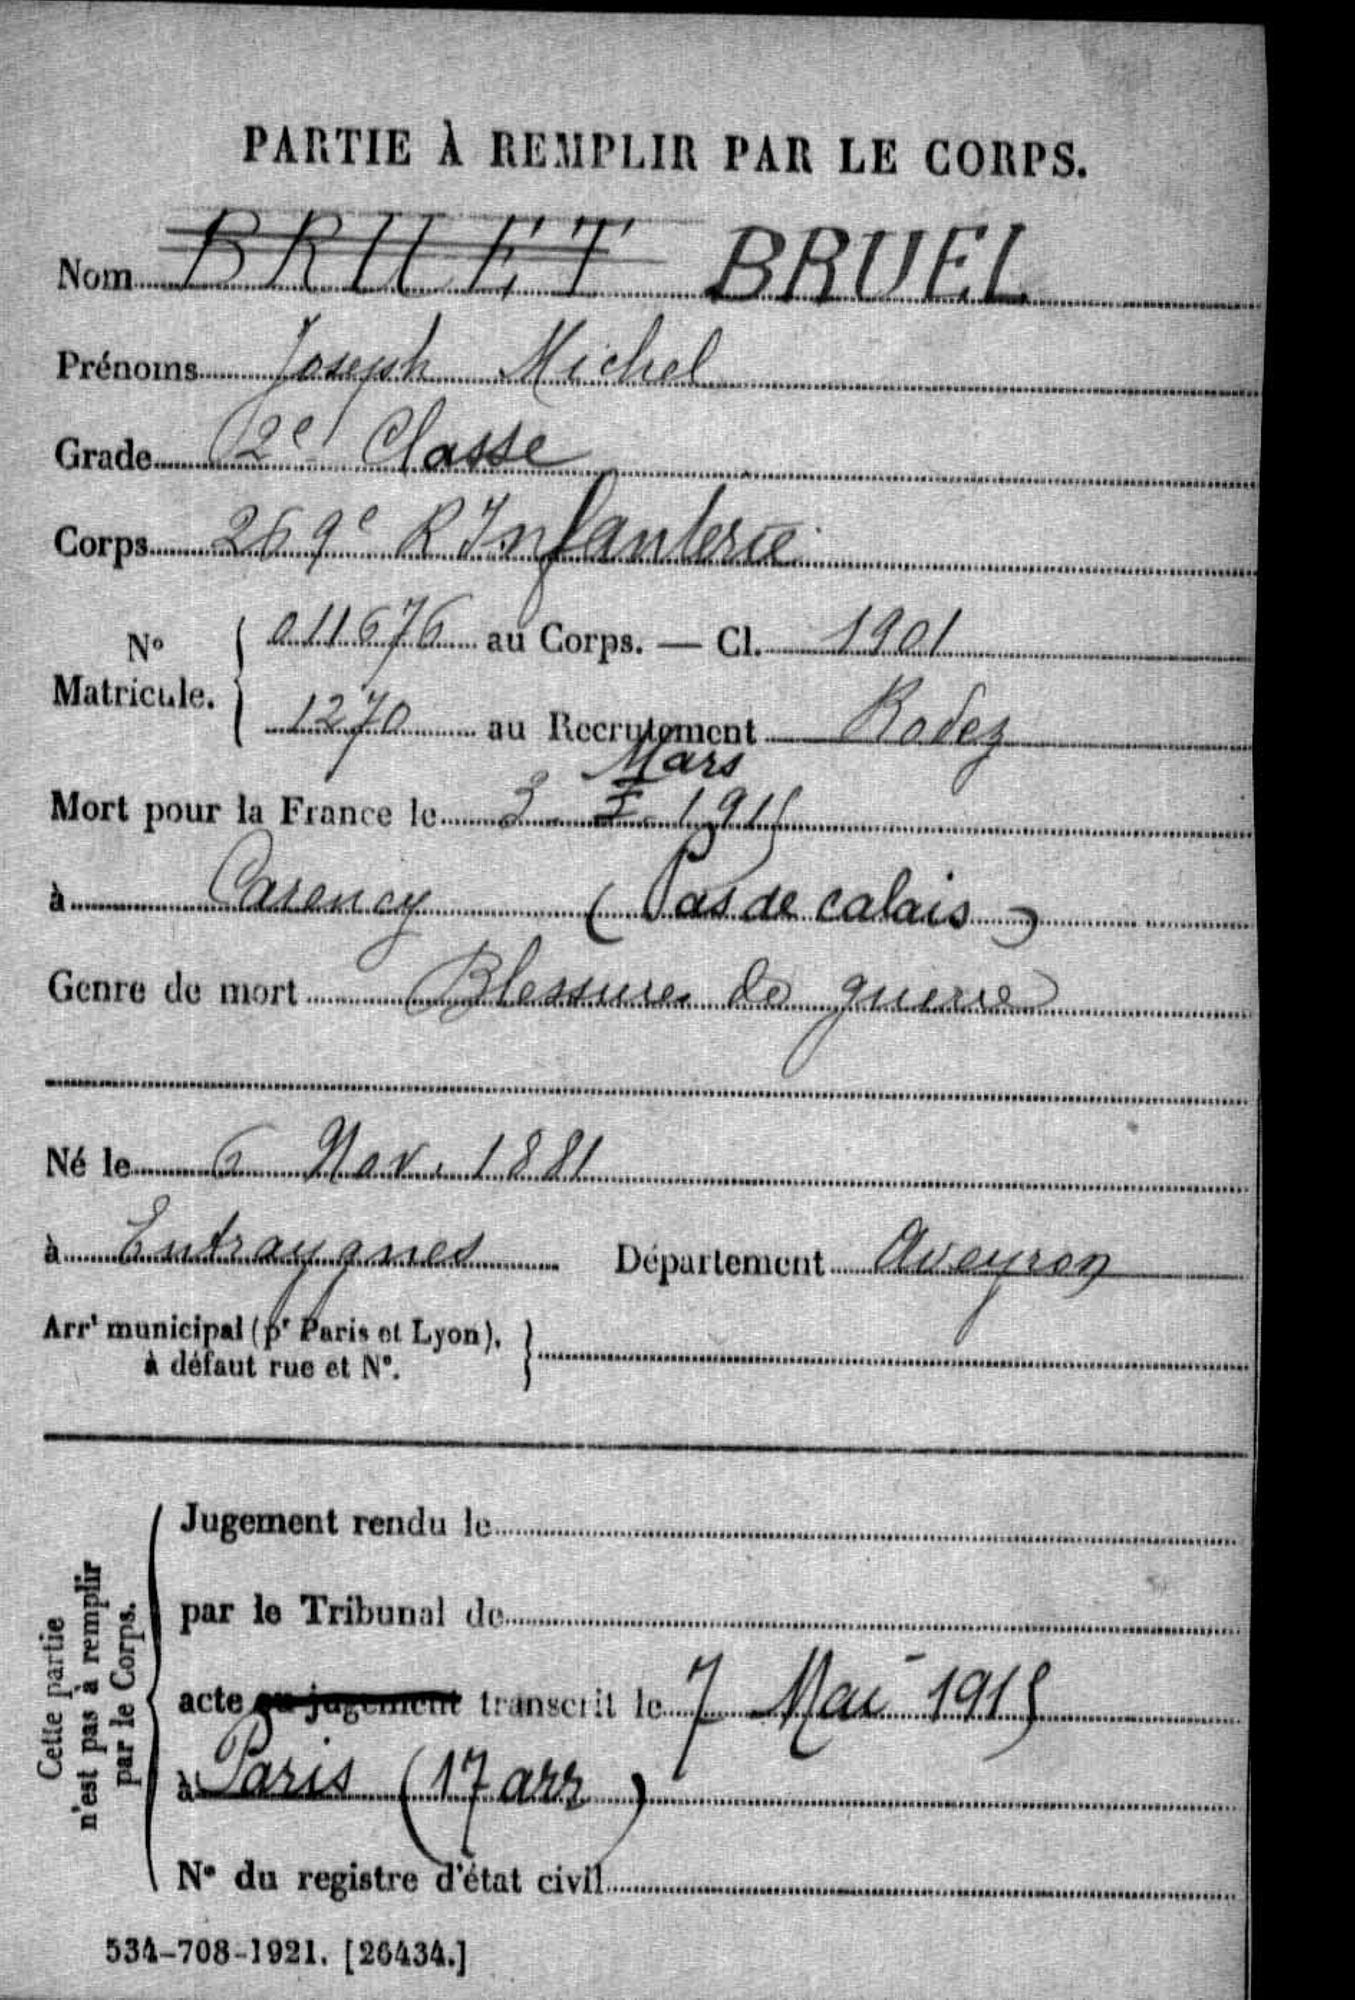 PARTIE À REMPLIR PAR LE CORPS.
Nom BRUET BRUEL
Prénoms Joseph Michel
Grade 2e Classe
Corps 269e R Infanterie
No Matricule. { 011676 au Corps. — Cl. 1901
1270 au Recrutement Rodez
Mars
Mort pour la France le 3 1915
à Carency (Pas de calais)
Genre de mort Blessures de guerre
Né le 6 Nov. 1881
à Entraygues Département Aveyron
Arrt municipal (pr Paris et Lyon), }
à défaut rue et No.
Cette partie
n'est pas à remplir
par le Corps.
Jugement rendu le
par le Tribunal de
acte ou jugement transcrit le 7 Mai 1915
à Paris (17 arr)
No du registre d'état civil
534-708-1921. [26434.]